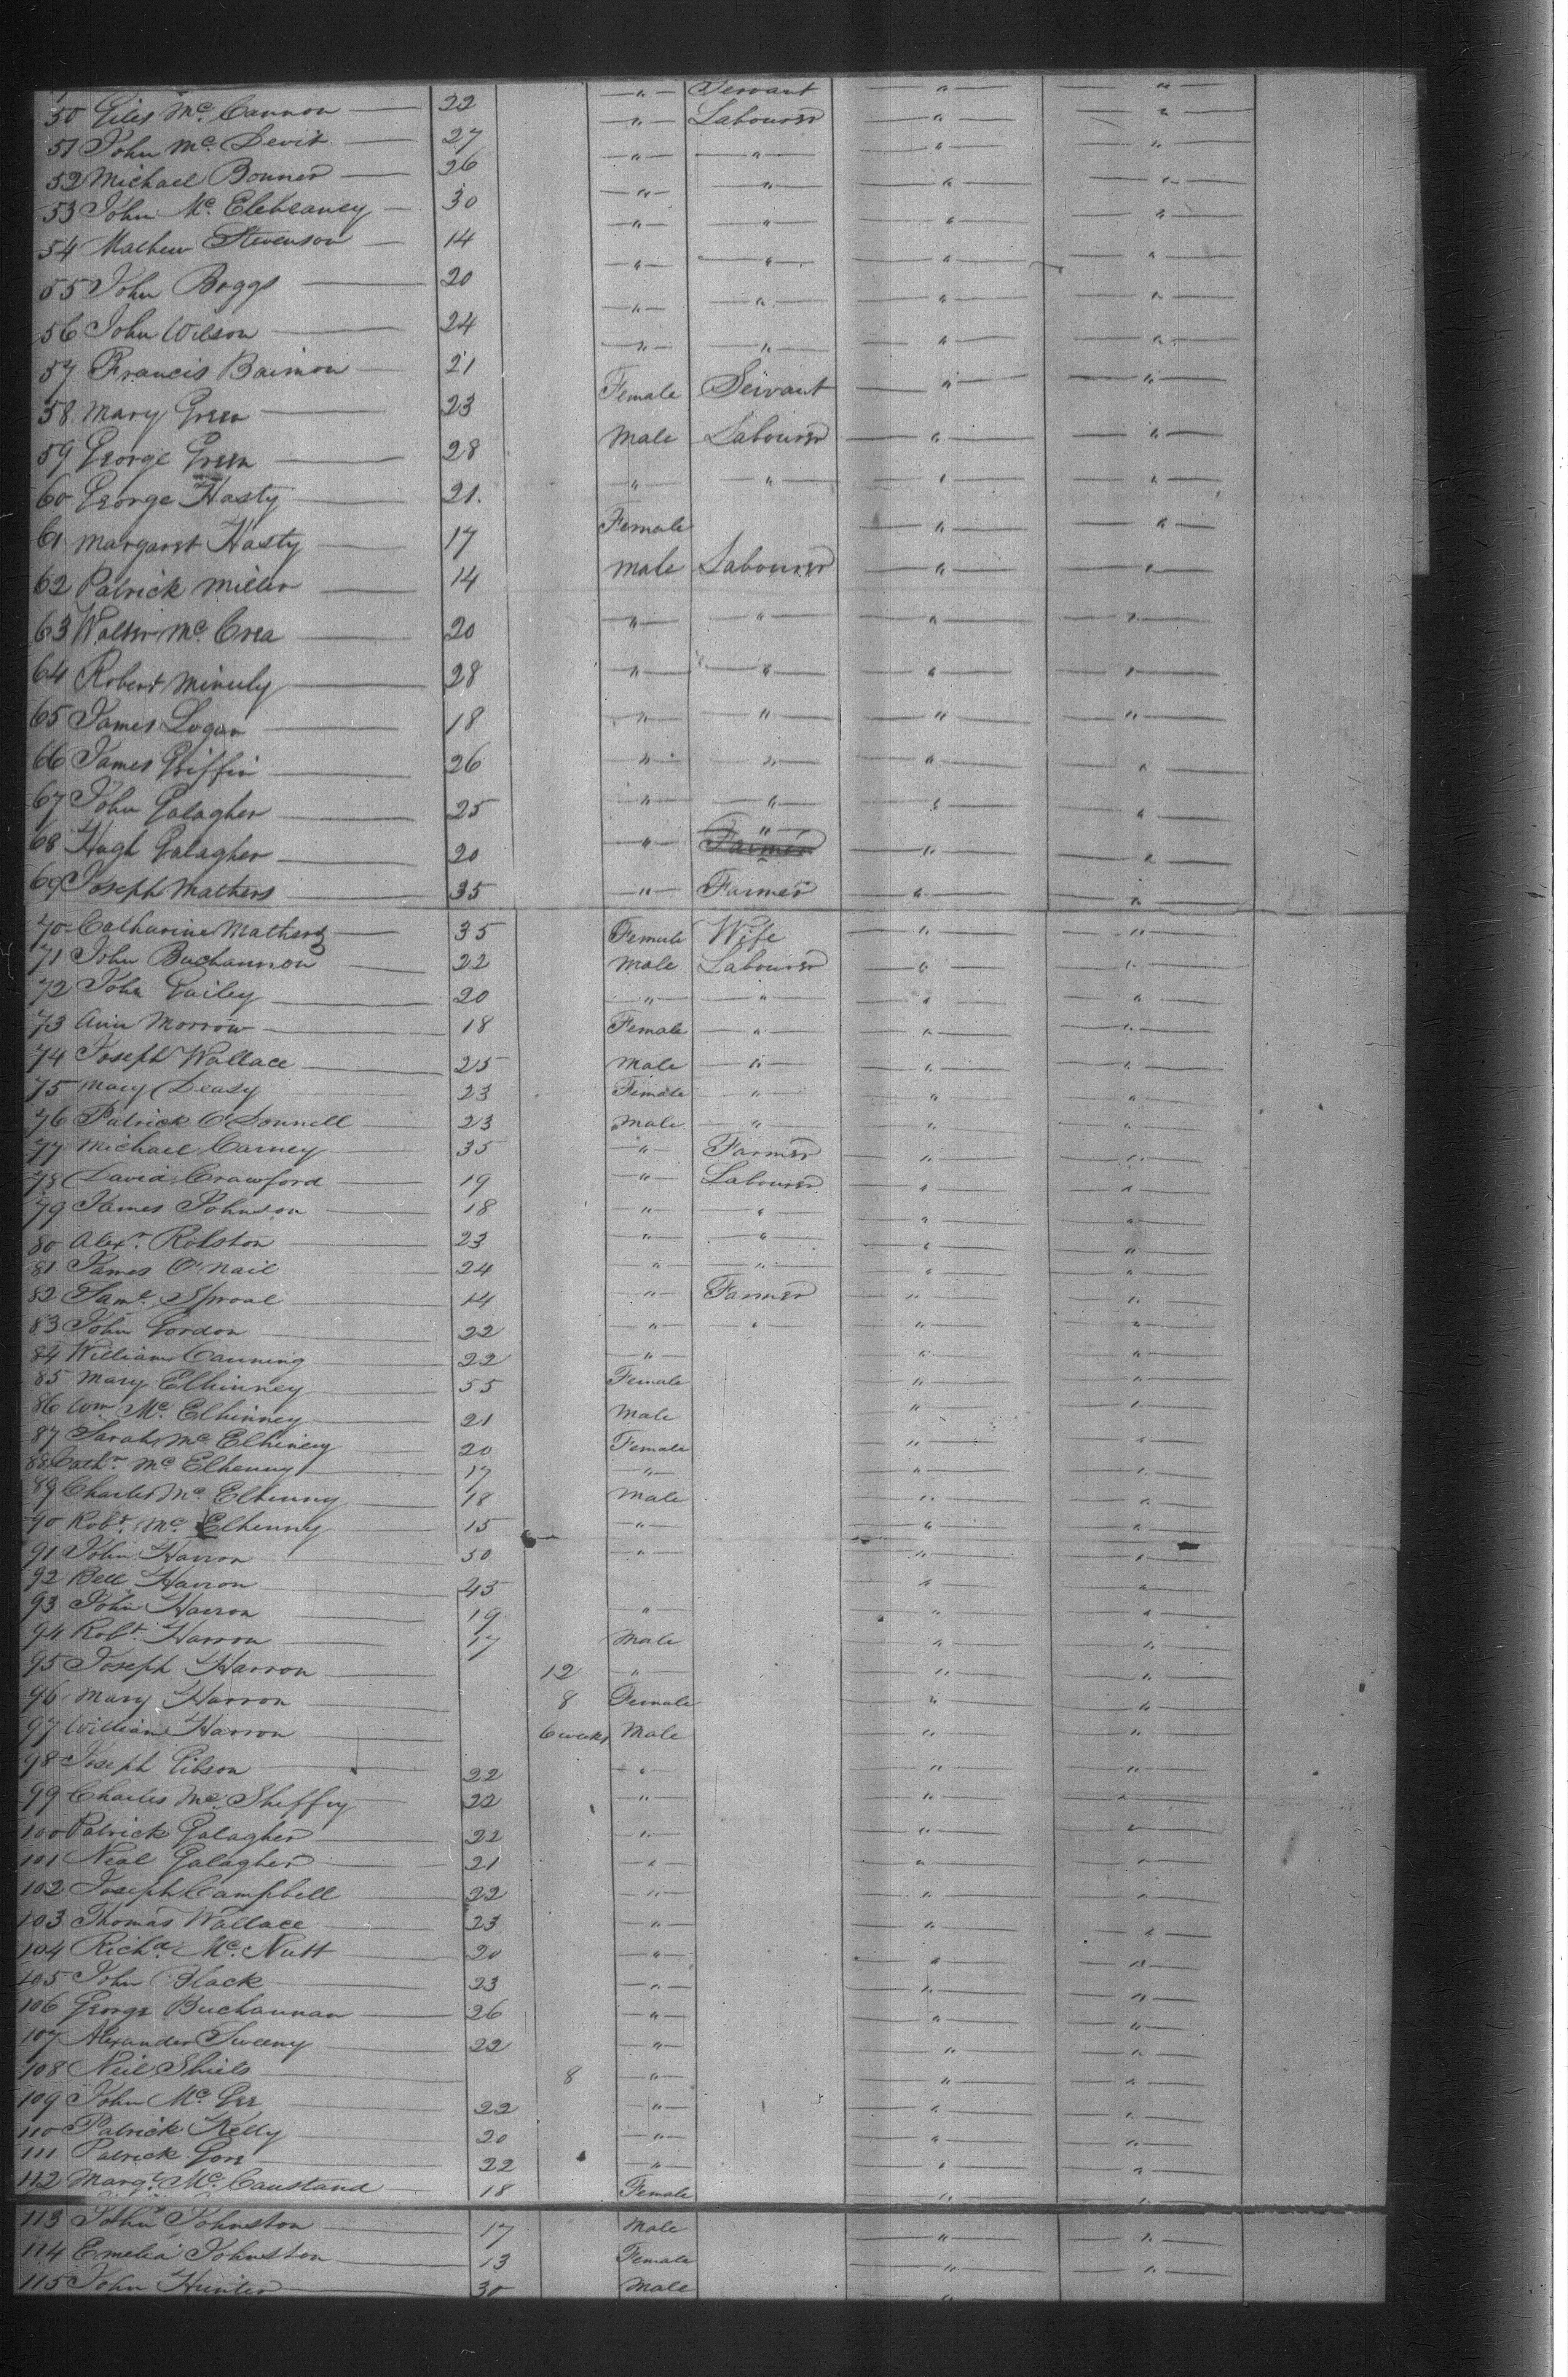 50 Giles Mc. Cannon 22 " Servant " "
51 John Mc. Devit 27 " Labourer " "
52 Michael Bonner 26 " " " "
53 John Mc. Elebeaney 30 " " " "
54 Mathew Stevenson 14 " " " "
55 John Boggs 20 " " " "
56 John Wilson 24 " " " "
57 Francis Baimon 21 " " " "
58 Mary Green 23 Female Servant " "
59 George Green 28 Male Labourer " "
60 George Hasty 21. " " " "
61 Margaret Hasty 17 Female " "
62 Patrick Miller 14 Male Labourer " "
63 Walter Mc. Crea 20 " " " "
64 Robert Minuly 28 " " " "
65 James Logan 18 " " " "
66 James Griffin 26 " " " "
67 John Galagher 25 " " " "
68 Hugh Galagher 20 " " " "
69 Joseph Mathers 35 " Farmer " "
70 Catharine Mathers 35 Female Wife " "
71 John Buchannon 22 Male Labourer " "
72 John Gailey 20 " " " "
73 Ann Morrow 18 Female " " "
74 Joseph Wallace 25 Male " " "
75 Mary Deasy 23 Female " " "
76 Patrick O'Donnell 23 Male " " "
77 Michael Carney 35 " Farmer " "
78 David Crawford 19 " Labourer " "
79 James Johnson 18 " " " "
80 Alexr. Rolston 23 " " " "
81 James O'Nail 24 " " " "
82 Saml. Sproal 14 " Farmer " "
83 John Gordon 22 " " " "
84 William Canning 22 " " "
85 Mary Elhinney 55 Female " "
86 Wm Mc. Elhinney 21 Male " "
87 Sarah Mc Elhiney 20 Female " "
88 Cathr. Mc Elhenny 17 " " "
89 Charles Mc. Elhenny 18 Male " "
90 Robt. Mc. Elhenny 15 " " "
91 John Harron 50 " " "
92 Bell Harron 45 " "
93 John Harron 19 " " "
94 Robt. Harron 17 Male " "
95 Joseph Harron 12 " " "
96 Mary Harron 8 Female " "
97 William Harron 6 weeks Male " "
98 Joseph Gibson 22 " " "
99 Charles Mc. Sheffry 22 " " "
100 Patrick Galagher 22 " " "
101 Neal Galagher 21 " " "
102 Joseph Campbell 22 " " "
103 Thomas Wallace 23 " " "
104 Richd. Mc. Nutt 20 " " "
105 John Black 23 " " "
106 George Buchannan 26 " " "
107 Alexander Sweeny 22 " " "
108 Neil Shiels 8 " " "
109 John Mc. Gee 22 " " "
110 Patrick Kelly 20 " " "
111 Patrick Gore 22 " " "
112 Margt. Mc. Caustand 18 Female " "
113 John Johnston 17 Male " "
114 Emelia Johnston 13 Female " "
115 John Hunter 30 Male "